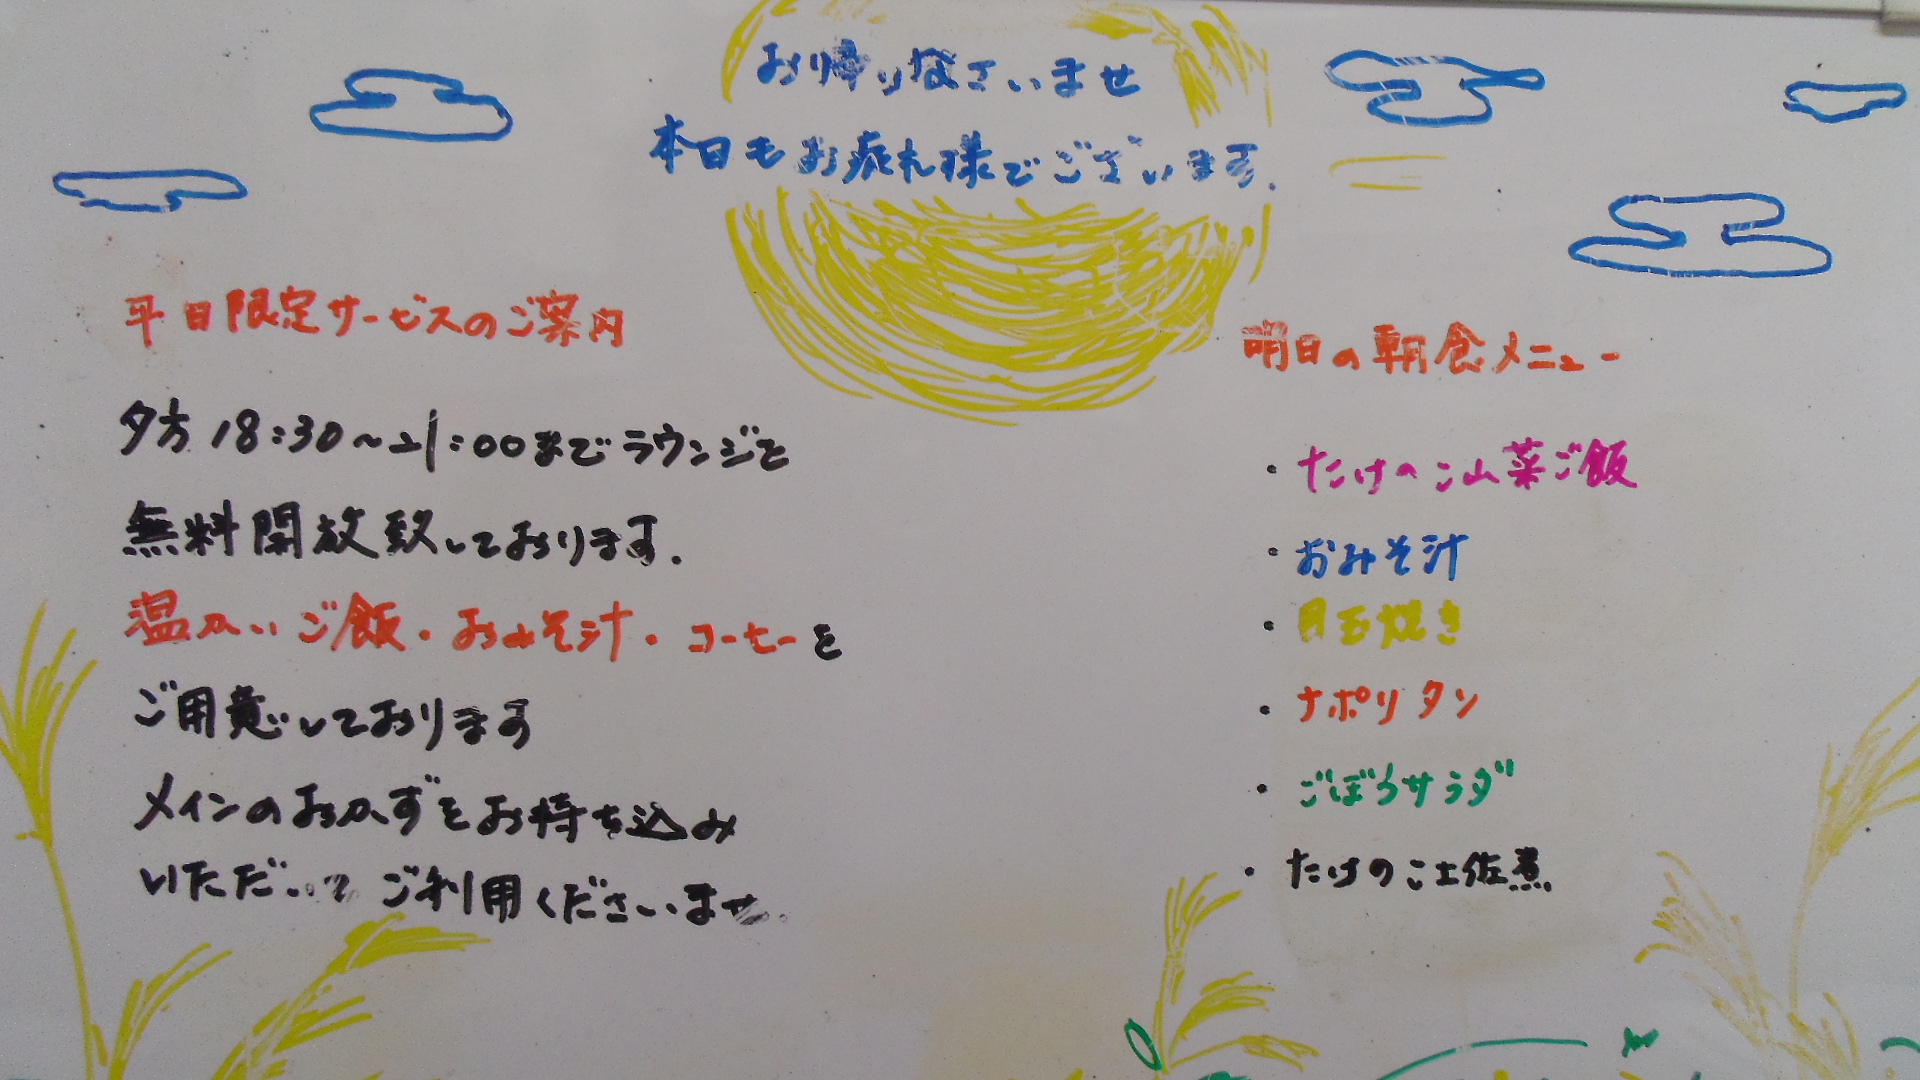 お帰りなさいませ
本日もお疲れ様でございます.
平日限定サービスのご案内
夕方18:30~21:00までラウンジを
無料開放致しております.
温かいご飯・おみそ汁・コーヒーを
ご用意しております
メインのおかずをお持ち込み
いただいて ご利用くださいませ.
明日の朝食メニュー
・たけのこ山菜ご飯
・おみそ汁
・目玉焼き
・ナポリタン
・ごぼうサラダ
・たけのこ土佐煮